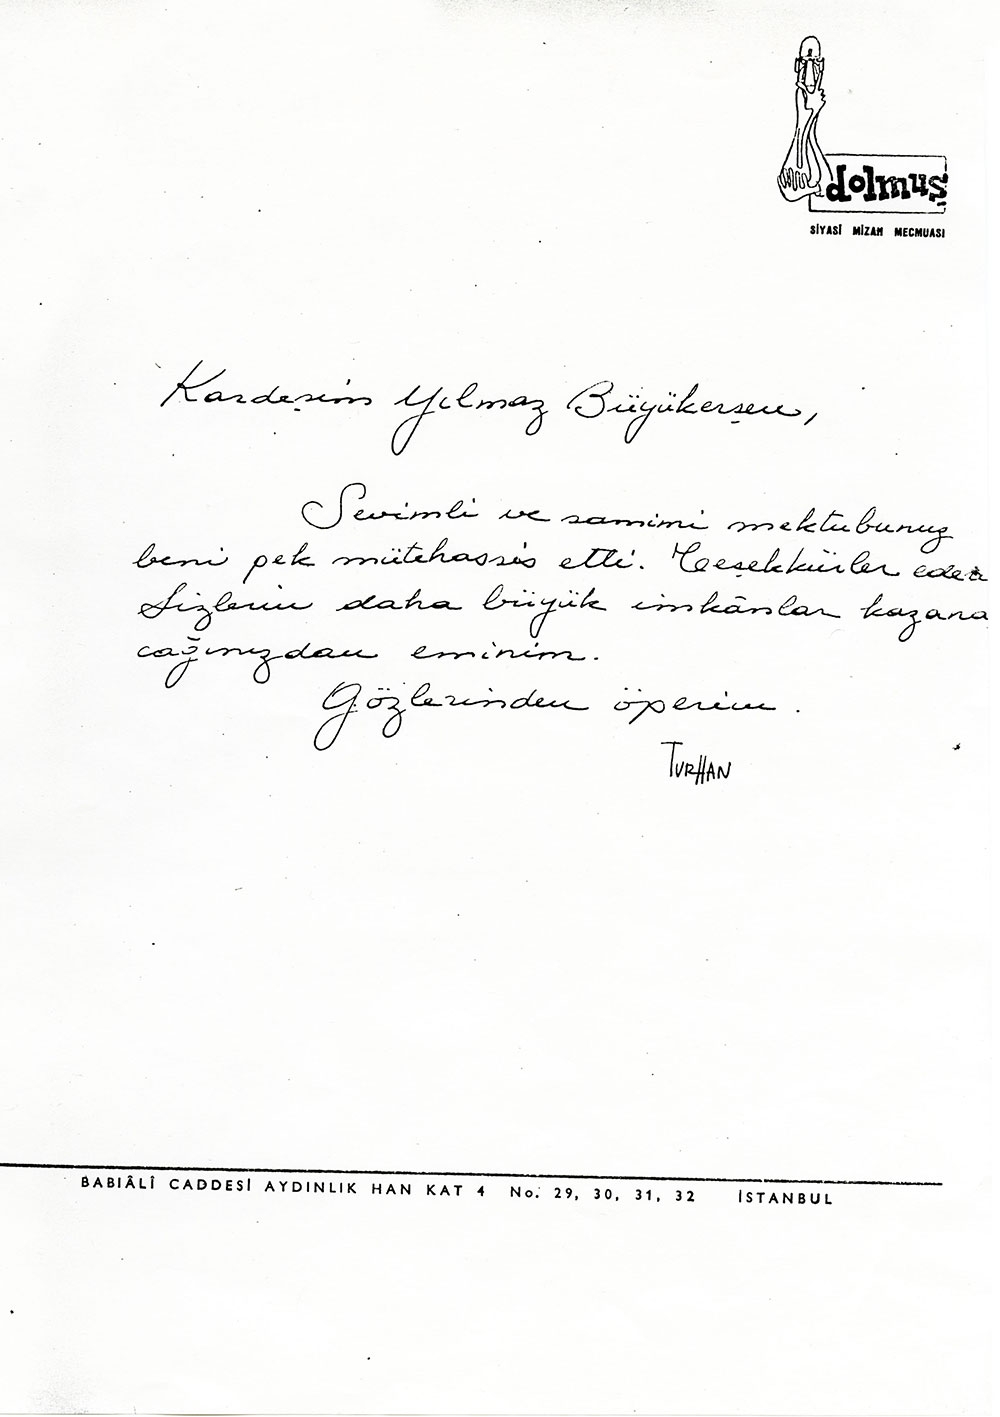 dolmuş
SİYASÎ MİZAH MECMUASI
Kardeşim Yılmaz Büyükerşen,
Sevimli ve samimi mektubunuz
beni pek mütehassis etti. Teşekkürler eder
Sizlerin daha büyük imkânlar kazana
cağınızdan eminim.
Gözlerinden öperim.
TURHAN
BABIÂLÎ CADDESİ AYDINLIK HAN KAT 4 No. 29, 30, 31, 32 İSTANBUL